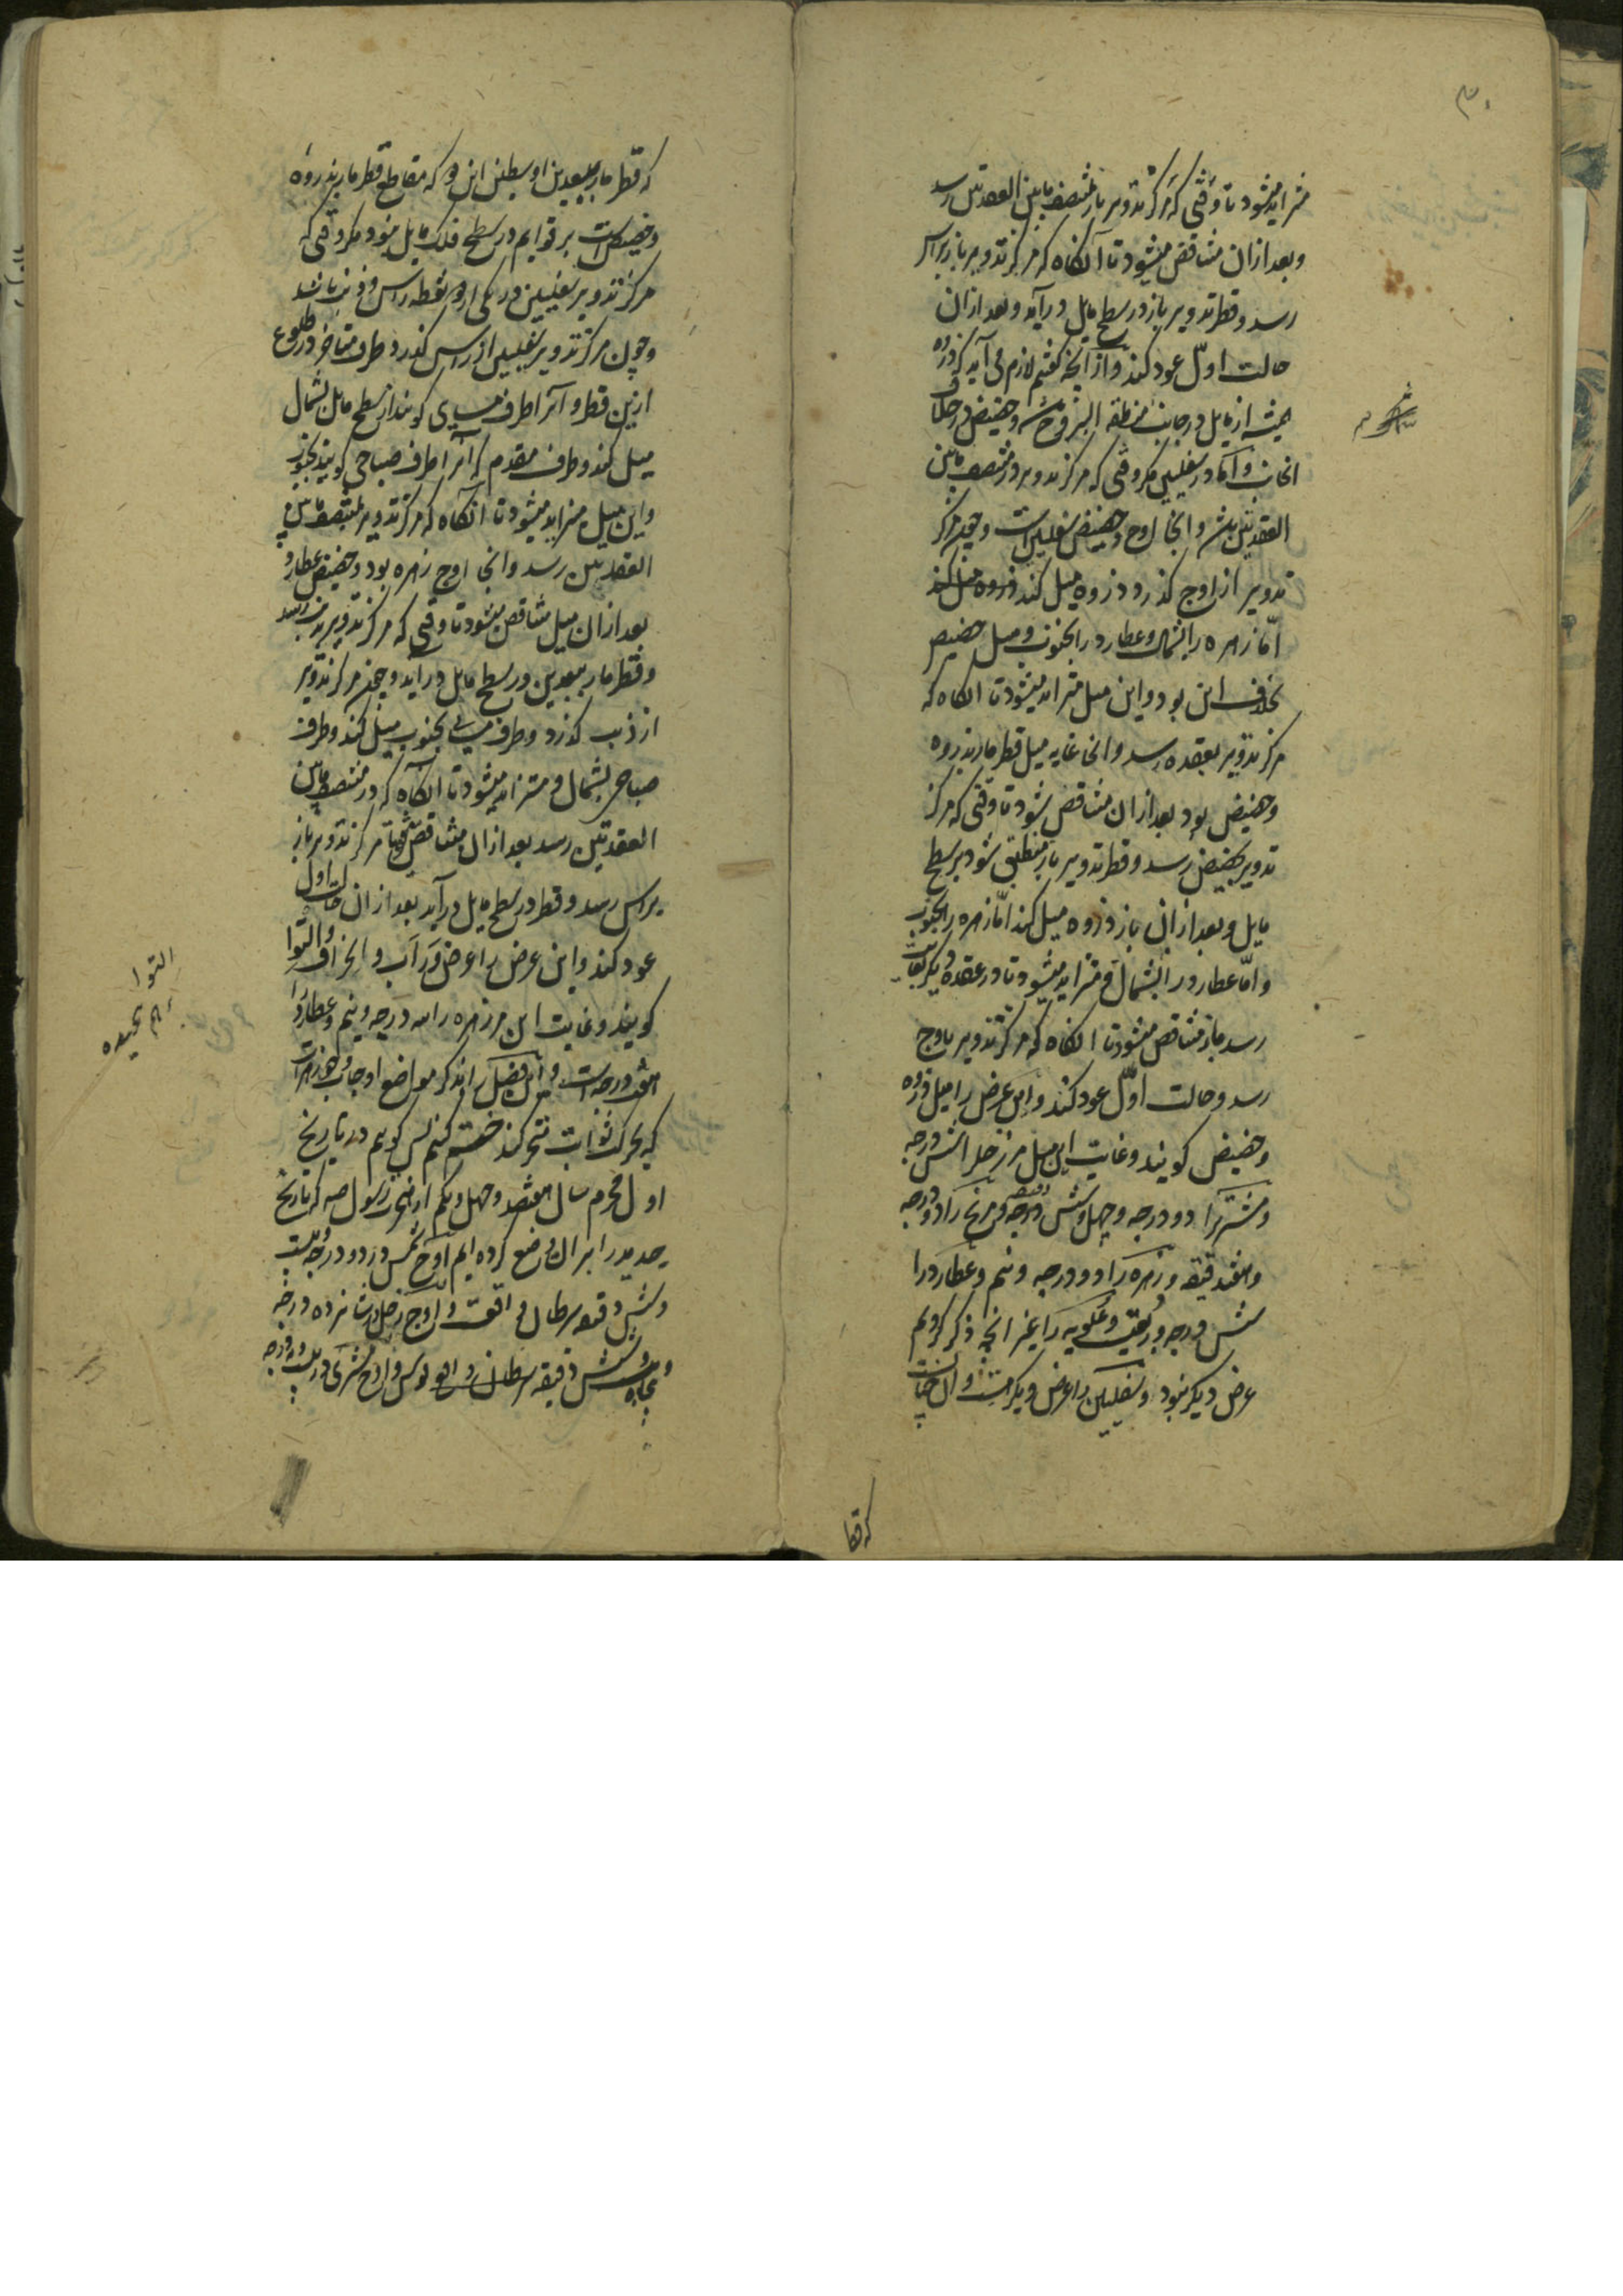 ۳۰
متزاید میشود تا وقتی که مرکز تدویر باز بمنتصف مابین العقدتین رسد
و بعد از ان متناقص میشود تا آنگاه که مرکز تدویر باز براس
رسد و قطر تدویر باز در سطح مایل در آید و بعد از ان
حالت اوّل عود کند و از آنچه گفتیم لازم می آید که ذروه
همیشه از مایل در جانب منطقة البروج باشد و حضیض در خلاف
انجانب و امّا در سفلیین مگر وقتی که مرکز تدویر در منتصف مابین
العقدتین باشد و انجا اوج و حضیض سفلیین است و چون مرکز
تدویر از اوج گذرد ذروه میل کند
امّا زهره را بشمال و عطارد را بجنوب و میل حضیض
بخلاف این بود و این میل متزاید میشود تا انگاه که
مرکز تدویر بعقده رسد و انجا غایه میل قطر مار بذروه
و حضیض بود بعد از ان متناقص شود تا وقتی که مرکز
تدویر بحضیض رسد و قطر تدویر باز منطبق شود بر سطح
مایل و بعد از ان باز ذروه میل کند امّا زهره را بجنوب
و امّا عطارد را بشمال و متزاید میشود تا در عقده دیگر بغایت
رسد باز متناقص میشود تا انگاه که مرکز تدویر باوج
رسد و حالت اوّل عود کند و این عرض را میل ذروه
و حضیض گویند و غایت این میل مر زحل را شش درجه
و مشتری را دو درجه و چهل و شش دقیقه و مریخ را دو درجه
و هفده دقیقه و زهره را دو درجه و نیم و عطارد را
شش درجه و ربعی و علویه را بغیر انچه ذکر کردیم
عرض دیگر نبود و سفلیین را عرض دیگر هست و ان چنانست
که قطر مار ببعدین اوسطین این دو که مقاطع قطر مار بذروه
و حضیض است بر قوایم در سطح فلک مایل نبود مگر وقتی که
مرکز تدویر سفلیین در یکی از دو نقطه راس و ذنب باشد
و چون مرکز تدویر سفلیین از راس گذرد طرف متاخر در طلوع
ازین قطر و آنرا طرف مسایی گویند از سطح مایل بشمال
میل کند و طرف مقدم که آنرا طرف صباحی گویند بجنوب
و این میل متزاید میشود تا آنگاه که مرکز تدویر بمنتصف مابین
العقدتین رسد و انجا اوج زهره بود و حضیض عطارد
بعد از ان میل متناقص میشود تا وقتی که مرکز تدویر بذنب رسد
و قطر مار ببعدین در سطح مایل در آید و چون مرکز تدویر
از ذنب گذرد و طرف مسایی بجنوب میل کند و طرف
صباحی بشمال و متزاید میشود تا آنگاه که در منتصف مابین
العقدتین رسد بعد از ان متناقص تا مرکز تدویر باز
براس رسد و قطر در سطح مایل در آید بعد از ان حالت اول
عود کند و این عرض را عرض وراب و انحراف و التوا
گویند و غایت این مر زهره را سه درجه و نیم و عطارد را
هفت درجه است و این فصل را بذکر مواضع اوجات و جوزهرات
که بحرکت ثوابت متحرکند ختم کنیم پس گویم در تاریخ
اول محرم سال هفتصد و چهل و یکم از هجرت رسول صه که تاریخ
جدید را بر ان وضع کرده ایم اوج شمس در دو درجه و بیست
و شش دقیقه سرطان واقعست و اوج زحل در شانزده درجه
و پنجاه و شش دقیقه سرطان و اوج مشتری در بیست و نه درجه
التوا
بهم پیچیده
که قطر